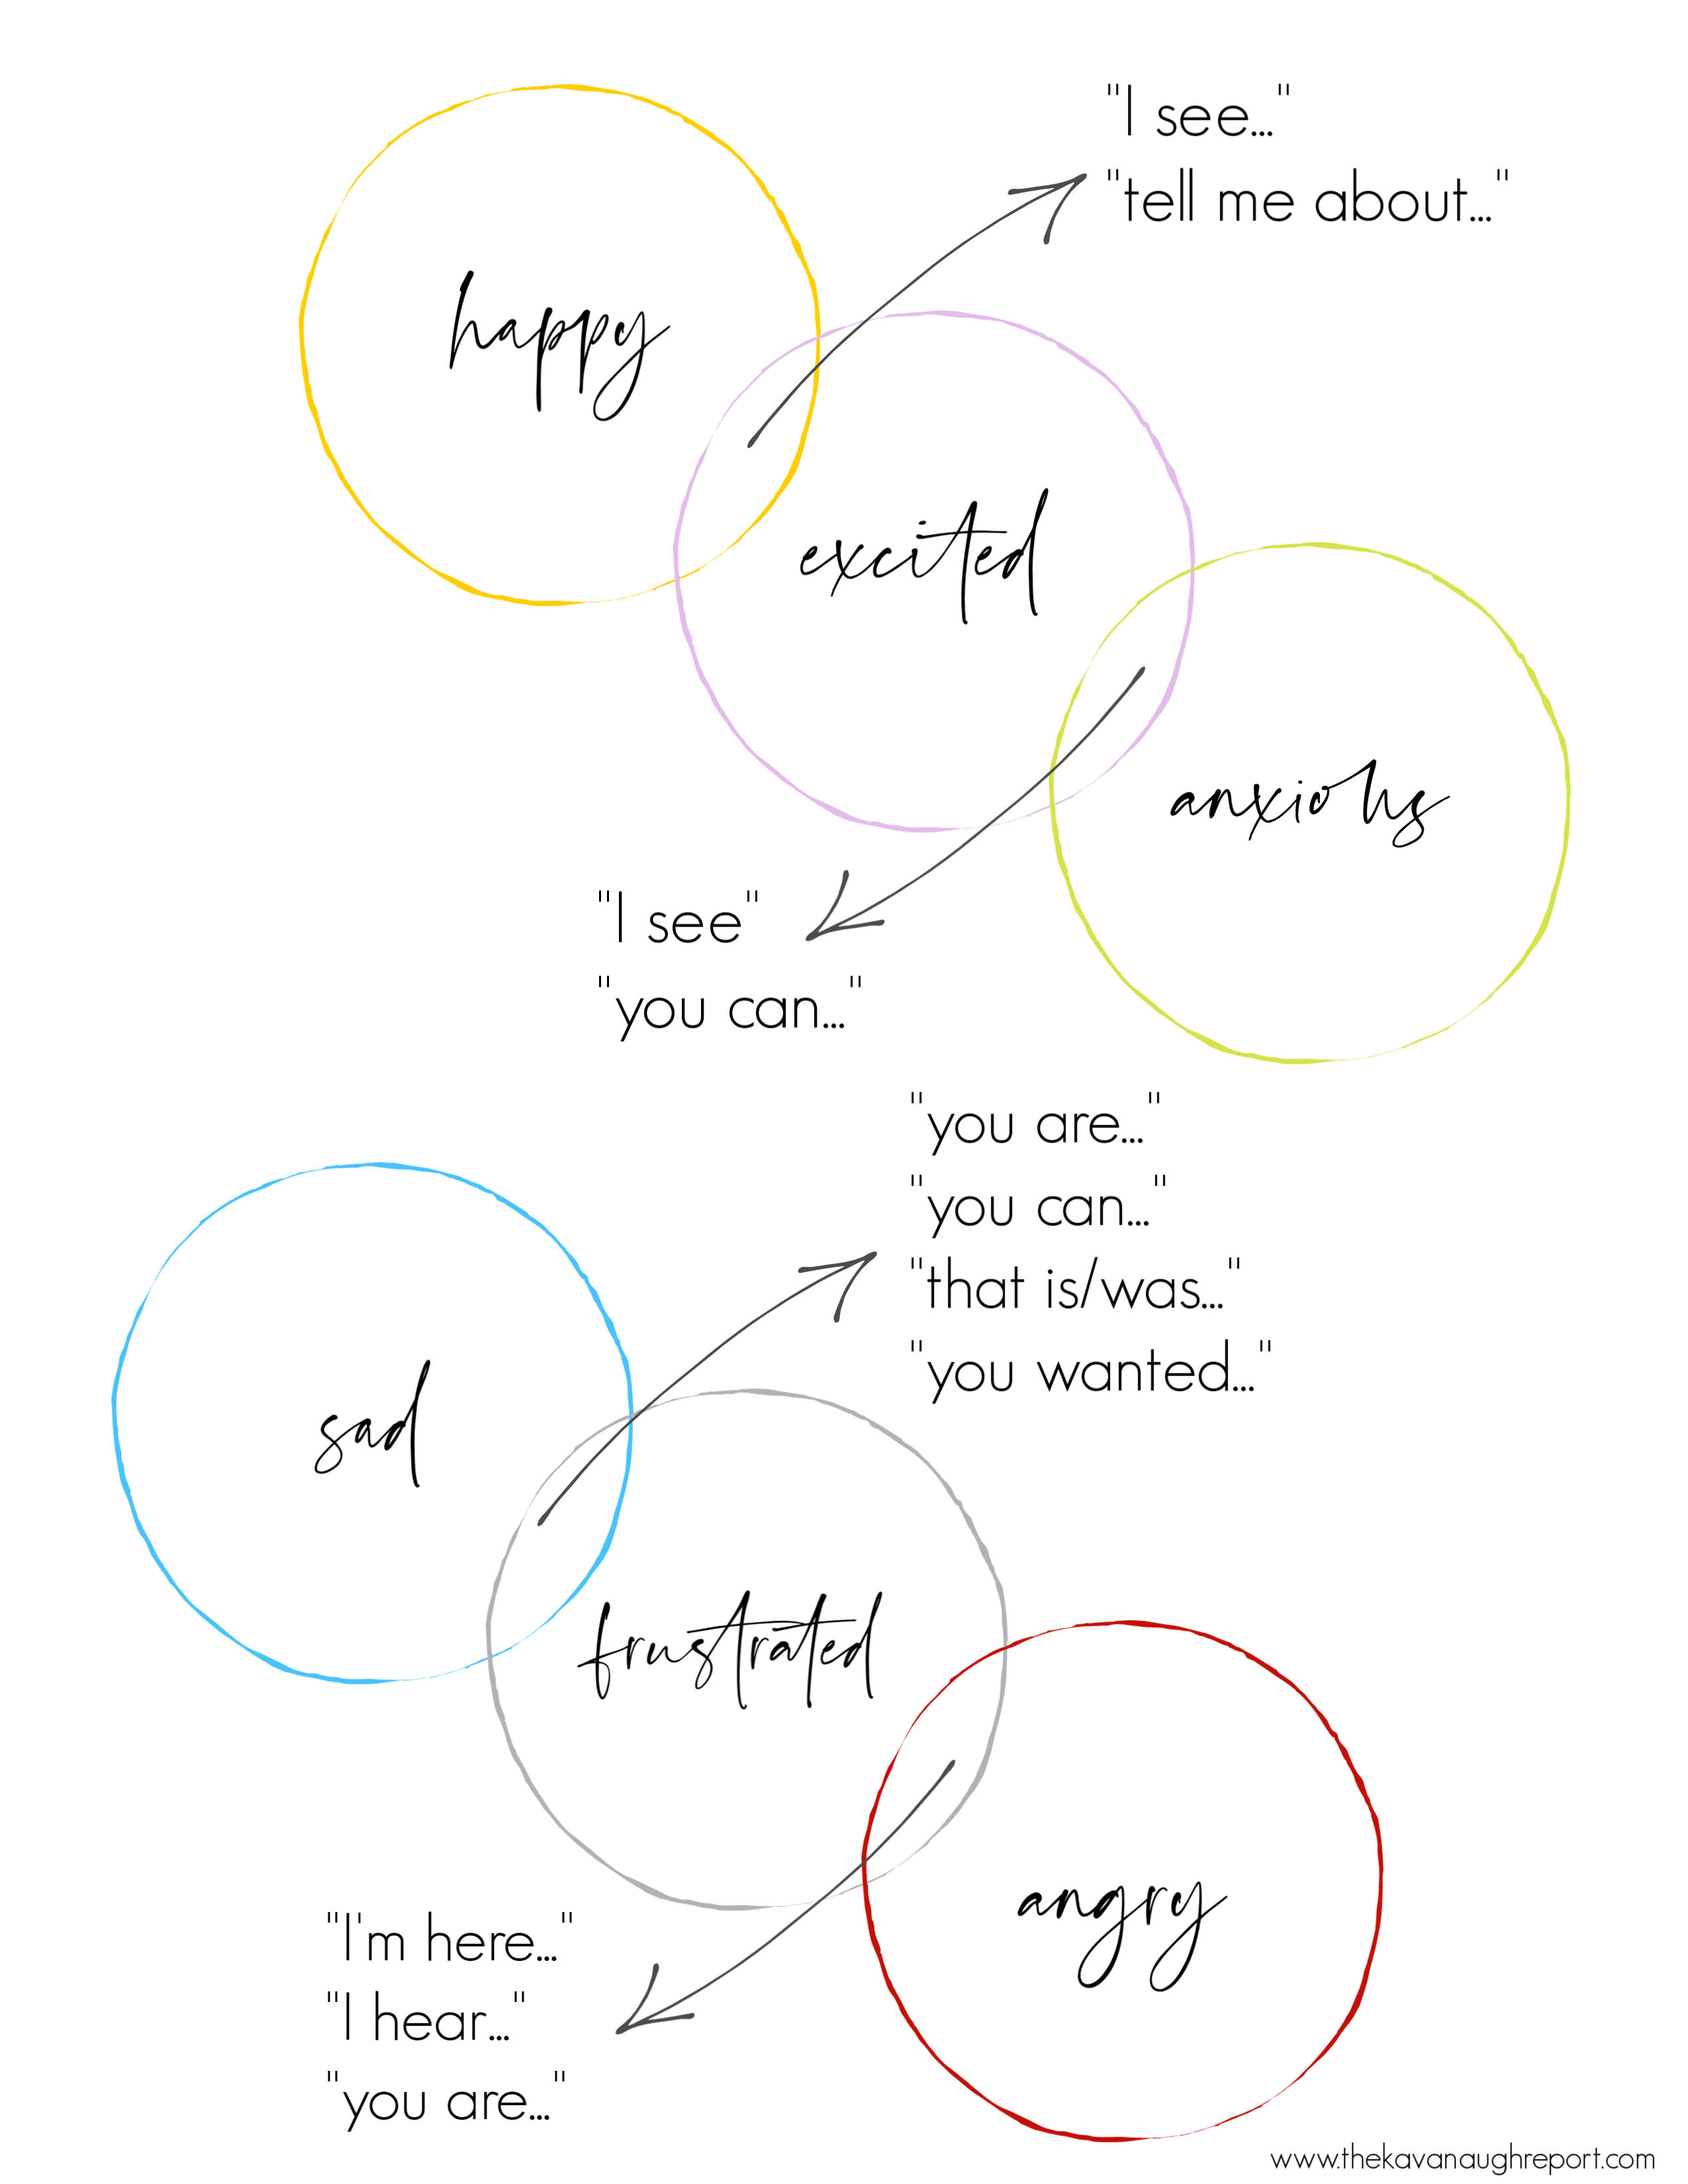 "I see..."
"tell me about..."
happy
excited
anxious
"I see"
"you can..."
"you are..."
"you can..."
"that is/was..."
"you wanted..."
sad
frustrated
angry
"I'm here..."
"I hear..."
"you are..."
www.thekavanaughreport.com